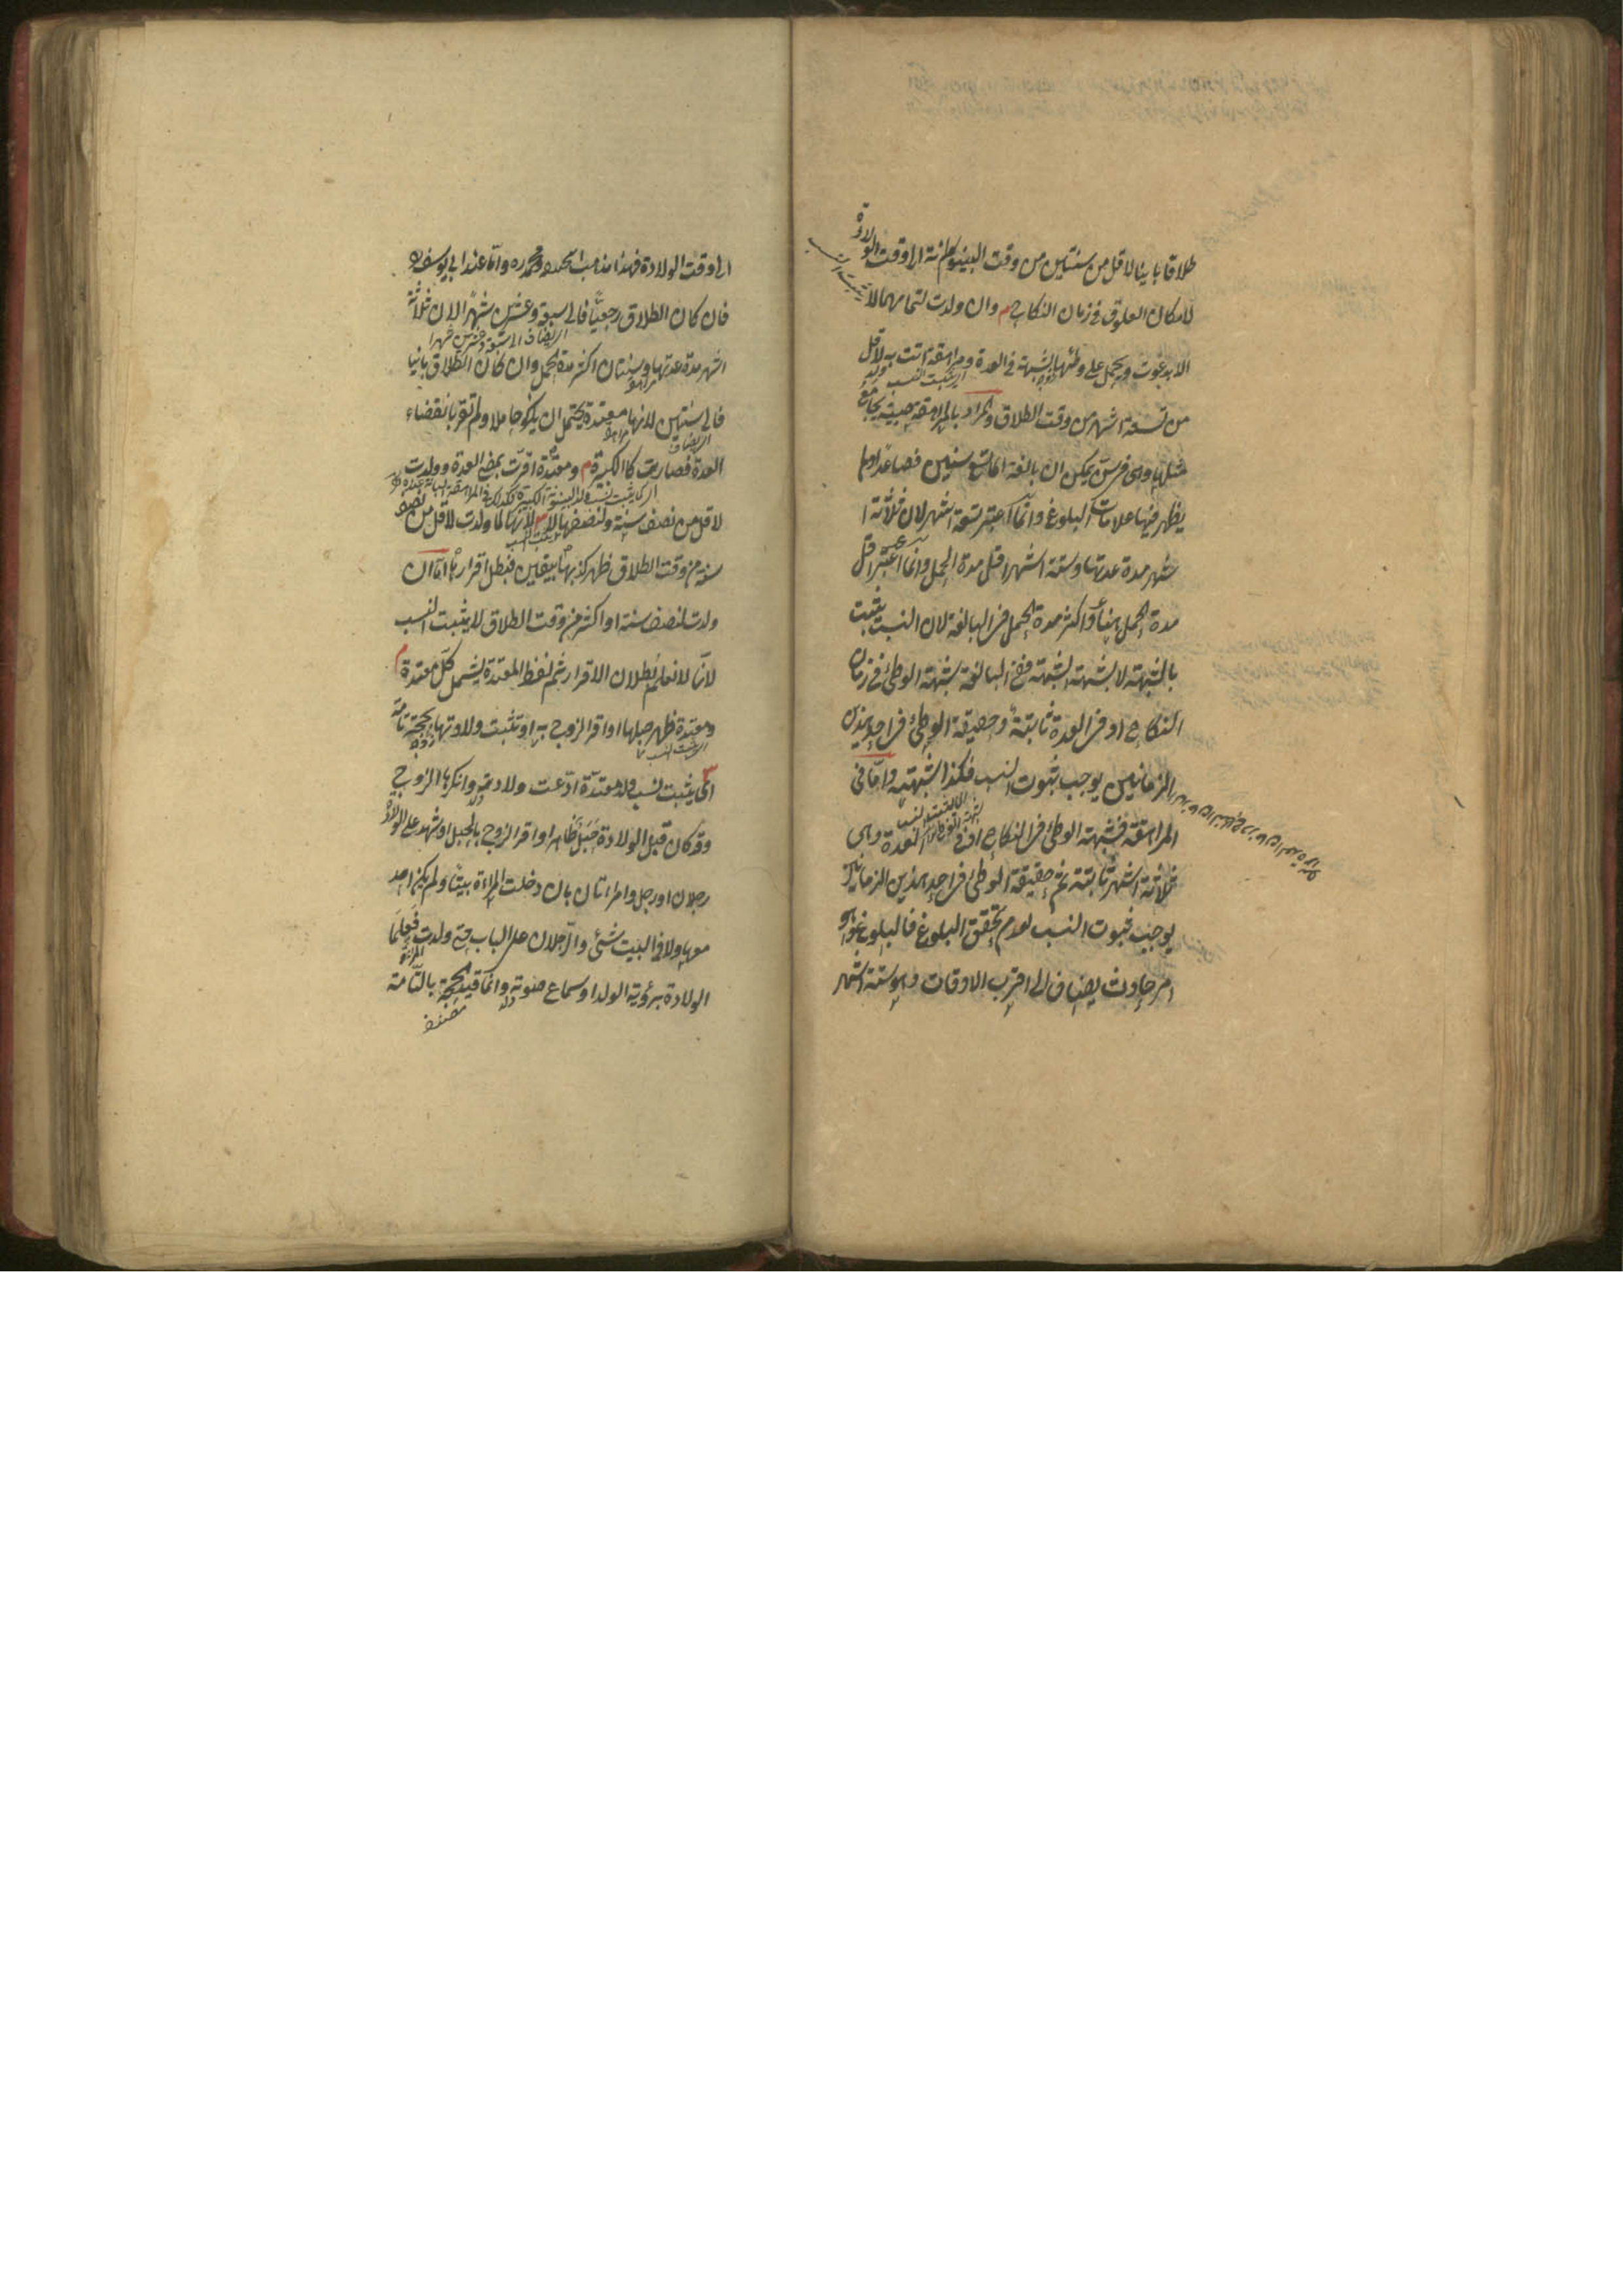 طلاقا باينا لاقل من سنتين من وقت البينونة الى وقت الولادة
لامكان العلوق فى زمان النكاح م وان ولدت لتمامهما لا
يثبت النسب
الا بدعوت ويحمل على وطئها بالشبهة فى العدة ومراهقة اتت به لاقل
اى يثبت النسب ولد
من تسعة اشهر من وقت الطلاق والمراد بالمراهقة صبية يجامع
مثلها وهى فى سن يمكن ان بالغة اى تسع سنين فصاعدا وما
يظهر فيها علامات البلوغ وانما اعتبر تسعة اشهر لان ثلاثة ا
شهر مدة عدتها وستة اشهر اقل مدة الحمل وانما اعتبر اقل
مدة الحمل هنا واكثر مدة الحمل فى البالغة لان النسب يثبت
بالشبهة لا بشبهة الشبهة ففى البالغة شبهة الوطئ فى زمان
النكاح او فى العدة ثابتة وحقيقة الوطئ فى احد هذين
الزمانين يوجب ثبوت النسب فكذا شبهته واما فى
المراهقة فشبهة الوطئ فى النكاح او فى العدة وهى
ثلاثة اشهر ثابتة ثم حقيقة الوطئ فى احد هذين الزمانين
يوجب ثبوت النسب لعدم تحقق البلوغ فالبلوغ وهو
امر حادث يضاف الى اقرب الاوقات وهو ستة اشهر
الى وقت الولادة فهذا مذهب ابى حنيفة ومحمد ره واما عند ابى يوسف ره
فان كان الطلاق رجعيا فالى سبعة وعشرين شهرا لان ثلاثة
اى يضاف الى سبعة وعشرين شهرا
اشهر مدة عدتها وسنتان اكثر مدة الحمل وان كان الطلاق باينا
فالى سنتين لانها معتدة يحتمل ان يكون حاملا ولم تقر بانقضاء
العدة فصارت كالكبيرة م ومعتدة اقرت بمضى العدة وولدت
لاقل من نصف سنة ولنصفها لا لانها لما ولدت لاقل من نصف
سنة من وقت الطلاق ظهر كذبها بيقين فبطل اقرارها اما ان
ولدت لنصف سنة او اكثر من وقت الطلاق لا يثبت النسب
لانا لا نعلم بطلان الاقرار ثم لفظ المعتدة يشمل كل معتدة م
ومعتدة ظهر حبلها او اقر الزوج به او تثبت ولادتها بحجة تامة
اى يثبت نسب ولد معتدة ادعت ولادته وانكرها الزوج
وقد كان قبل الولادة حبل ظاهر او اقر الزوج بالحبل او شهد على الولادة
رجلان او رجل وامراتان بان دخلت المراة بيتا ولم يكن احد
معها ولا فى البيت شئ والرجلان على الباب حتى ولدت فعلما
الولادة برؤية الولد او سماع صوته وانما قيد الحجة بالتامة